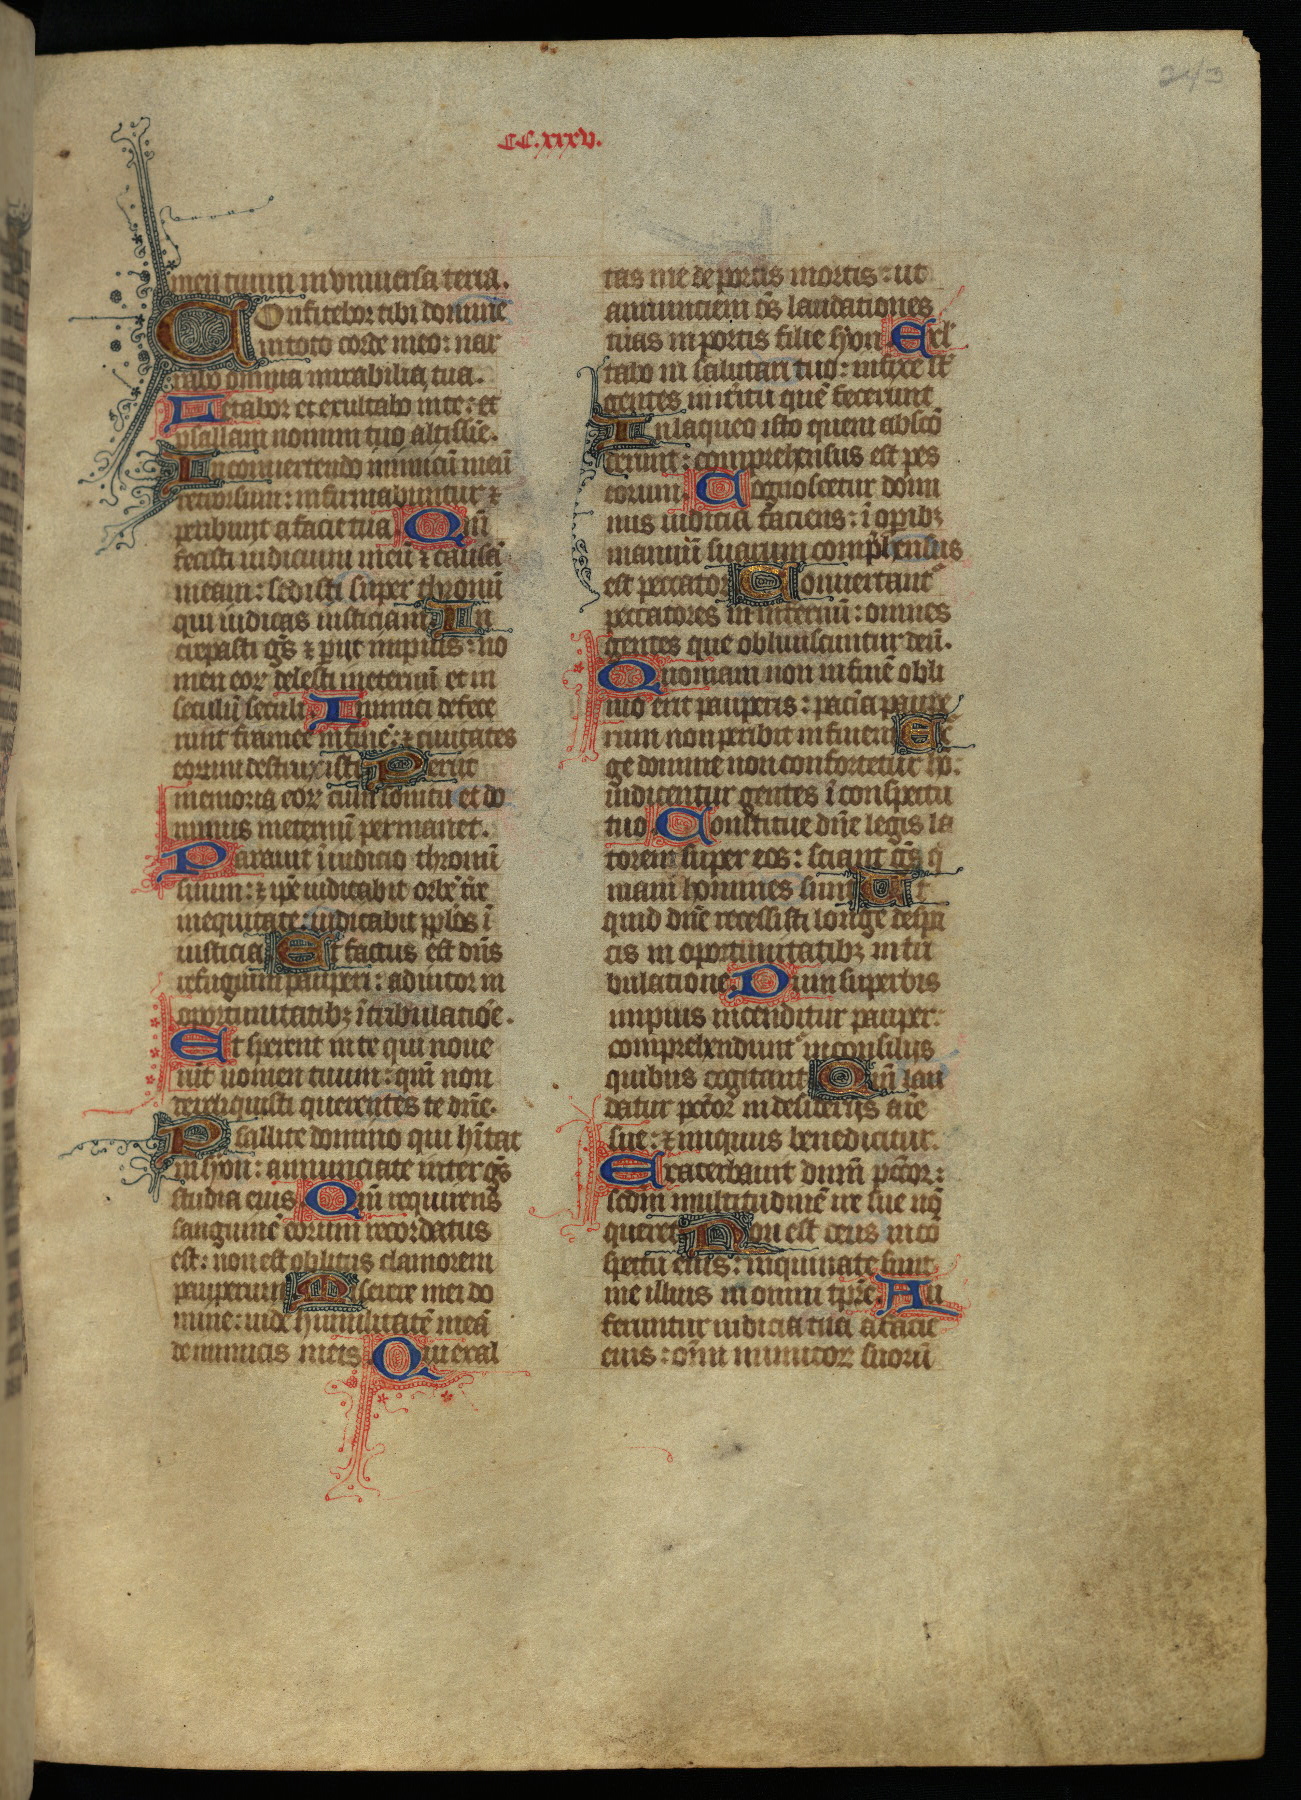 243
CC.xxxv.
men tuum in vniuersa terra.
Confitebor tibi domine
in toto corde meo: nar
rabo omnia mirabilia tua.
Letabor et exultabo in te: et
psallam nomini tuo altissīe.
In conuertendo inimicū meū
retrorsum: infirmabuntur ⁊
peribunt a facie tua. Qm̄
fecisti iudicium meū ⁊ causā
meam: sedisti super thronū
qui iudicas iusticiam In
crepasti gēs ⁊ periit impius: no
men eoꝝ delesti in eternū et in
seculū seculi. Inimici defece
runt framee in finē: ⁊ ciuitates
eorum destruxisti Periit
memoria eoꝝ cum sonitu et do
minus in eternū permanet.
Parauit ī iudicio thronū
suum: ⁊ ip̄e iudicabit orbē t̄re
in equitate: iudicabit pp̄los ī
iusticia Et factus est dn̄s
refugium pauperi: adiutor in
oportunitatibꝫ ī tribulatiōe.
Et sperent in te qui noue
rūt nomen tuum: qm̄ non
dereliquisti querentes te dn̄e.
Psallite domino qui hītat
in syon: annunciate inter gēs
studia eius. Qm̄ requirens
sanguinē eorum recordatus
est: non est oblitus clamorem
pauperum Miserere mei do
mine: uide humilitatē meā
de inimicis meis. Qui exal
tas me de portis mortis: ut
annunciem om̄s laudationes
tuas in portis filie syon Exul
tabo in salutari tuo: infixe st̄
gentes in īt̄itu quē fecerunt
In laqueo isto quem absco
derunt: comprehensus est pes
eorum. Cognoscetur domi
nus iudicia faciens: ī opibꝫ
manuū suarum comp̄hensus
est peccator Conuertant
peccatores in infernū: omnes
gentes que obliuiscuntur deū.
Quoniam non in finē obli
uio erit pauperis: paciēcia paupe
rum non peribit in finem Ex
ge domine non confortetur hō:
iudicentur gentes ī conspectu
tuo. Constitue dn̄e legis la
torem super eos: sciant gēs q̄
niam homines sunt Ut
quid dn̄e recessisti longe despi
cis in oportunitatibꝫ in tri
bulatione. Dum superbis
impius incenditur pauper:
comprehenduntur in consiliis
quibus cogitant Qm̄ lau
datur pctōr in desideriis aīe
sue: ⁊ iniquus benedicitur.
Exacerbauit dnm̄ pctōr:
scdm̄ multitudinē ire sue nō
queret Non est deus in cō
spectu eius: inquinate sunt
uie illius in omni tp̄re. Au
feruntur iudicia tua a facie
eius: om̄i inimicoꝝ suorū